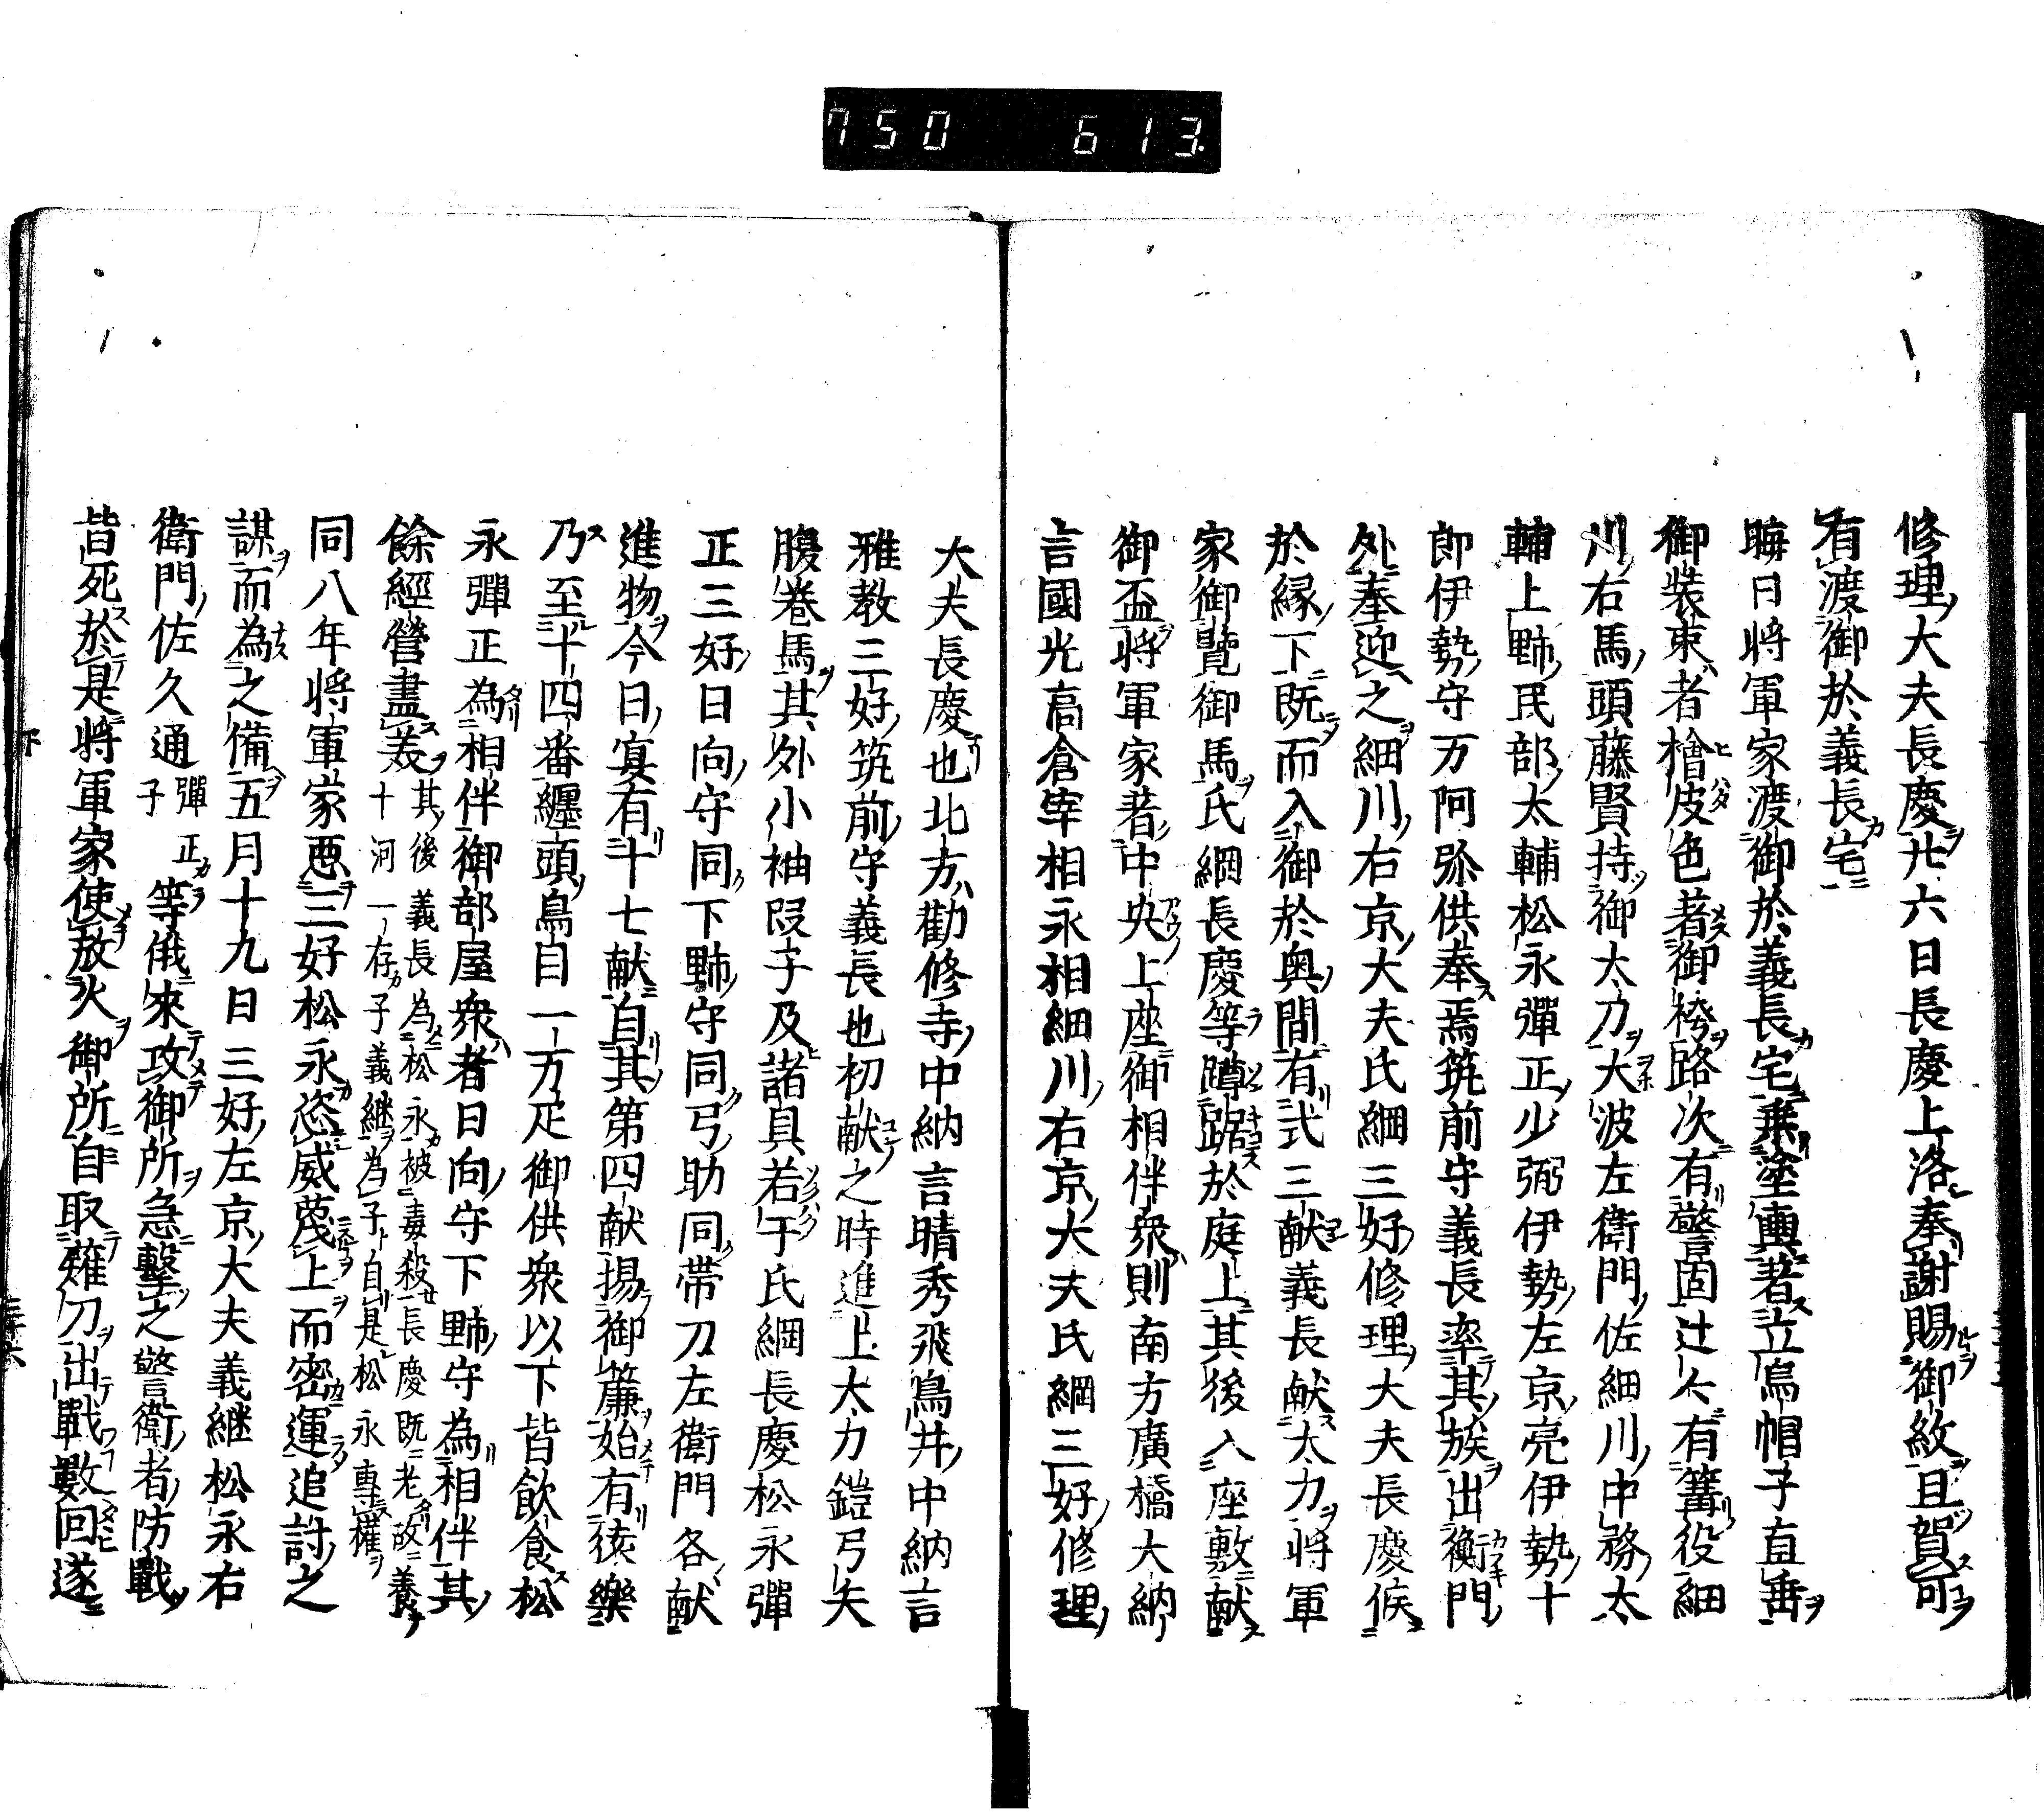 750 613
修理大夫長慶廿六日長慶上洛奉謝賜御紋且賀可
有渡御於義長宅
晦日将軍家渡御於義長宅乗塗輿著立烏帽子直垂
御装束者檜皮色著御袴路次有警固辻々有篝役細
川右馬頭藤賢持御太刀大波左衛門佐細川中務太
輔上野民部太輔松永彈正少弼伊勢左京亮伊勢十
郎伊勢守万阿弥供奉焉筑前守義長率其族出衡門
外奉迎之細川右京大夫氏綱三好修理大夫長慶候
於縁下既而入御於奥間有式三献義長献太刀将軍
家御覽御馬氏綱長慶等蹲踞於庭上其後入座敷献
御盃将軍家著中央上座御相伴衆則南方廣橋大納
言國光高倉宰相永相細川右京大夫氏綱三好修理
大夫長慶也北方勸修寺中納言晴秀飛鳥井中納言
雅教三好筑前守義長也初献之時進上太刀鎧弓矢
腹巻馬其外小袖段子及諸具若干氏綱長慶松永彈
正三好日向守同下野守同弓助同帯刀左衛門各献
進物今日宴有十七献自其第四献揚御簾始有猿樂
乃至十四番纏頭鳥目一万疋御供衆以下皆飲食松
永彈正為相伴御部屋衆者日向守下野守為相伴其
餘經營盡美其後義長為松永被毒殺長慶既老故養
十河一存子義継為子自是松永專權
同八年将軍家惡三好松永恣威蔑上而密運追討之
謀而為之備五月十九日三好左京大夫義継松永右
衛門佐久通彈正子等俄來攻御所急撃之警衛者防戰
皆死於是将軍家使放火御所自取薙刀出戰數回遂